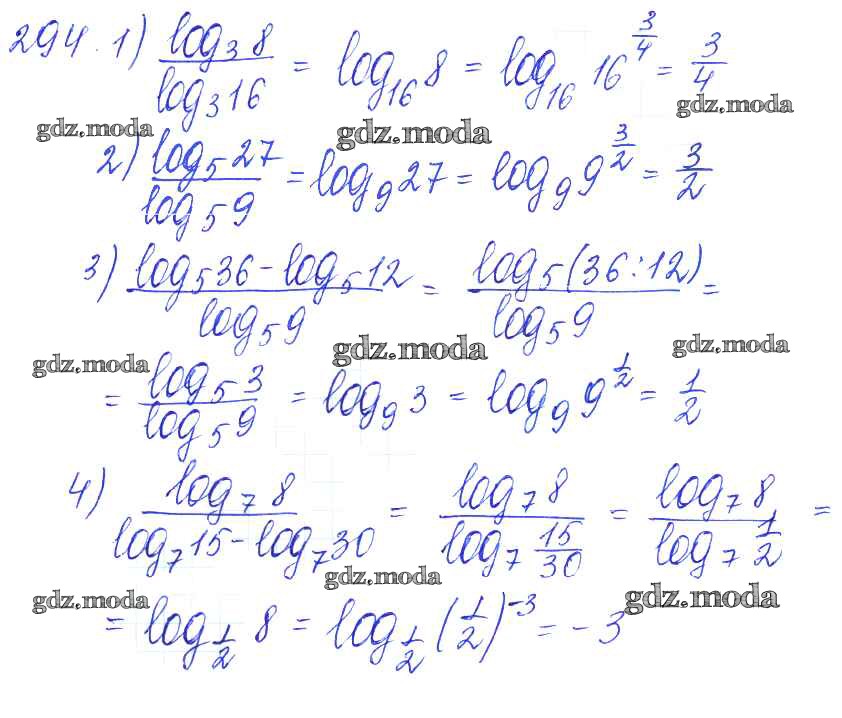 294. 1) log₃8 / log₃16 = log₁₆8 = log₁₆16^(3/4) = 3/4
gdz.moda gdz.moda gdz.moda
2) log₅27 / log₅9 = log₉27 = log₉9^(3/2) = 3/2
3) (log₅36 - log₅12) / log₅9 = log₅(36:12) / log₅9 =
gdz.moda gdz.moda gdz.moda
= log₅3 / log₅9 = log₉3 = log₉9^(1/2) = 1/2
4) log₇8 / (log₇15 - log₇30) = log₇8 / log₇(15/30) = log₇8 / log₇(1/2) =
gdz.moda gdz.moda gdz.moda
= log_(1/2) 8 = log_(1/2) (1/2)^(-3) = -3